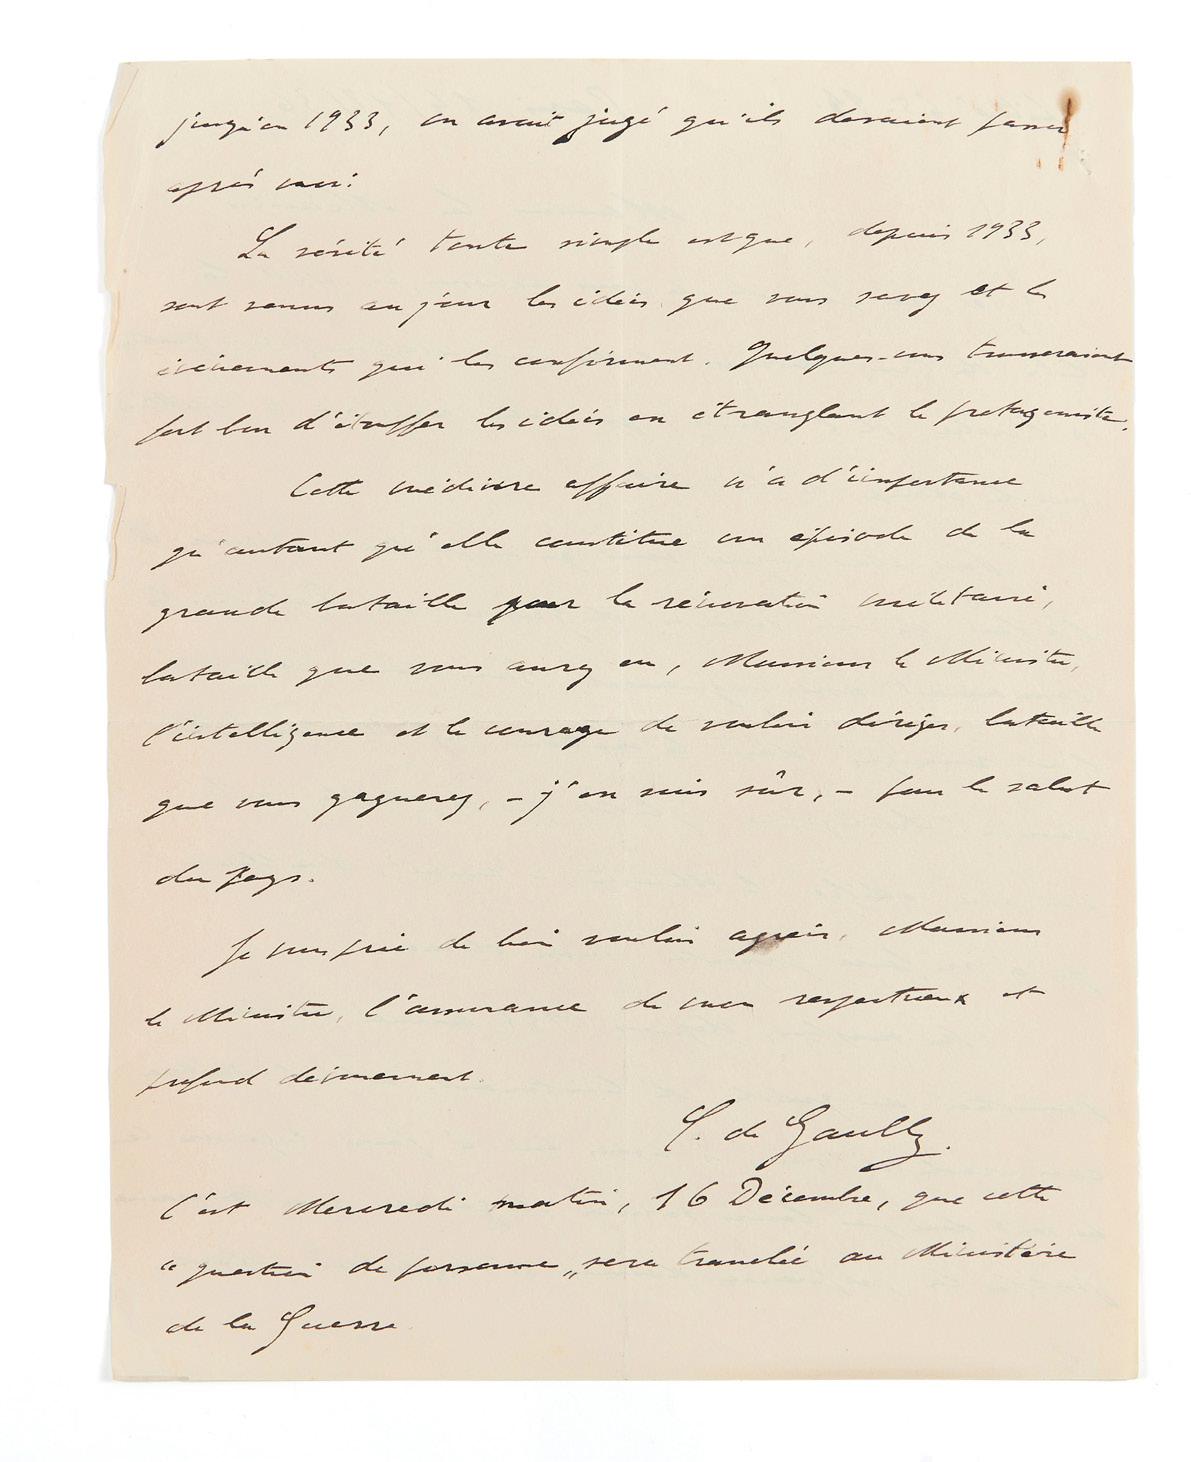 jusqu'en 1933, on avait jugé qu'ils devaient passer
après moi.
La vérité toute simple est que, depuis 1933,
sont venus au jour les idées que vous savez et les
événements qui les confirment. Quelques-uns trouveraient
fort bon d'étouffer les idées en étranglant le protagoniste.
Cette médiocre affaire n'a d'importance
qu'autant qu'elle constitue un épisode de la
grande bataille pour la rénovation militaire,
bataille que vous aurez eu, Monsieur le Ministre,
l'intelligence et le courage de vouloir diriger, bataille
que vous gagnerez, – j'en suis sûr, – pour le salut
du pays.
Je vous prie de bien vouloir agréer, Monsieur
le Ministre, l'assurance de mon respectueux et
profond dévouement.
C. de Gaulle.
C'est Mercredi matin, 16 Décembre, que cette
"question de personne" sera tranchée au Ministère
de la Guerre